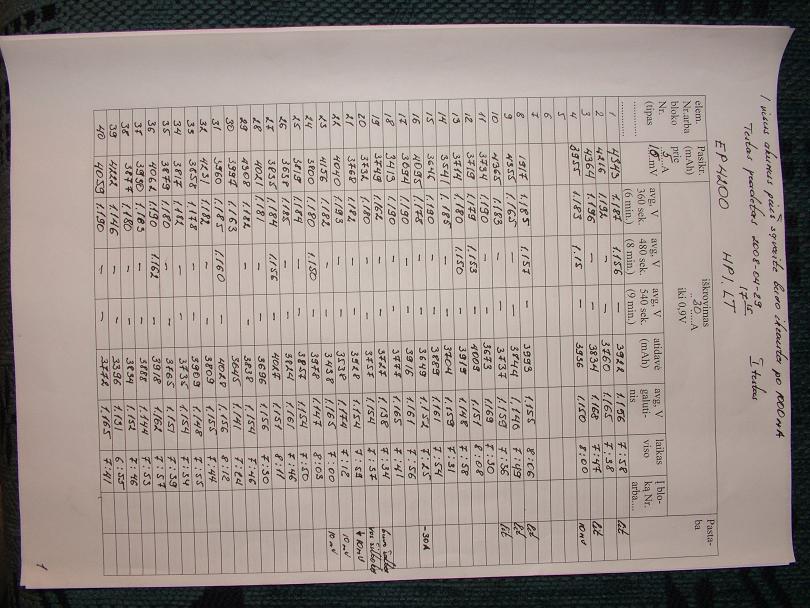 Į visus akumus prieš sąvaitę buvo įkrautas po 1000mA
Testas pradėtas 2008-04-29 I testas
17 15
EP4800 HPI.LT
elem. Nr.arba bloko Nr. (tipas ............
Pasikr. (mAh) prie 5 A 10 mV
iškrovimas ..30.....A iki 0,9V
Pastaba
avg. V 360 sek. (6 min.)
avg. V 480 sek. (8 min.)
avg. V 540 sek. (9 min.)
atidavė (mAh)
avg. V galutinis
laikas viso
Į bloką Nr. arba....
1 4345 1.187 1.156 – 3922 1.156 7:58 lit
2 4216 1.192 – – 3760 1.165 7:38
3 4364 1.196 – – 3834 1.168 7:47 lit
4 3955 1.183 1.15 – 3936 1.150 8:00 10mV
5
6
7
8 1.185 1.157 – 3993 1.155 8:06 lit
9 4355 1.165 – – 3844 1.140 7:49 lit
10 4365 1.183 – – 3737 1.159 7:36 lit
11 3734 1.190 – – 3673 1.169 7:30
12 3719 1.179 1.153 – 4009 1.151 8:08
13 3714 1.180 1.150 – 3919 1.148 7:58
14 3541 1.185 – – 3704 1.159 7:31
15 3647 1.190 – – 3889 1.161 7:54
16 4095 1.178 – – 3649 1.152 7:25 -30A
17 3694 1.190 – – 3916 1.161 7:56
18 3713 1.190 – – 3777 1.165 7:41
19 3749 1.182 – – 3727 1.158 7:34
20 3732 1.180 – – 3757 1.154 7:37
21 3768 1.182 – – 3928 1.154 7:59 10mV
22 4040 1.193 – – 3538 1.174 7:12 10mV
23 4156 1.182 – – 3438 1.165 7:00 10mV
24 3800 1.180 1.150 – 3978 1.147 8:03
25 3819 1.184 – – 3857 1.154 7:50
26 3658 1.185 – – 3824 1.161 7:46
27 3625 1.184 1.156 – 4027 1.151 8:11
28 4021 1.181 – – 3696 1.156 7:30
29 4308 1.182 – – 3828 1.154 7:46
30 3997 1.163 – – 3645 1.141 7:24
31 3960 1.185 1.160 – 4028 1.156 8:12
32 4231 1.182 – – 3809 1.155 7:44
33 3858 1.178 – – 3909 1.148 7:55
34 3817 1.182 – – 3735 1.154 7:34
35 3879 1.180 – – 3765 1.151 7:39
36 4062 1.190 1.162 – 3918 1.162 7:57
37 3990 1.183 – – 3888 1.144 7:53
38 3877 1.180 – – 3834 1.152 7:46
39 4222 1.146 – – 3396 1.131 6:55
40 4059 1.190 – – 3722 1.165 7:41
1